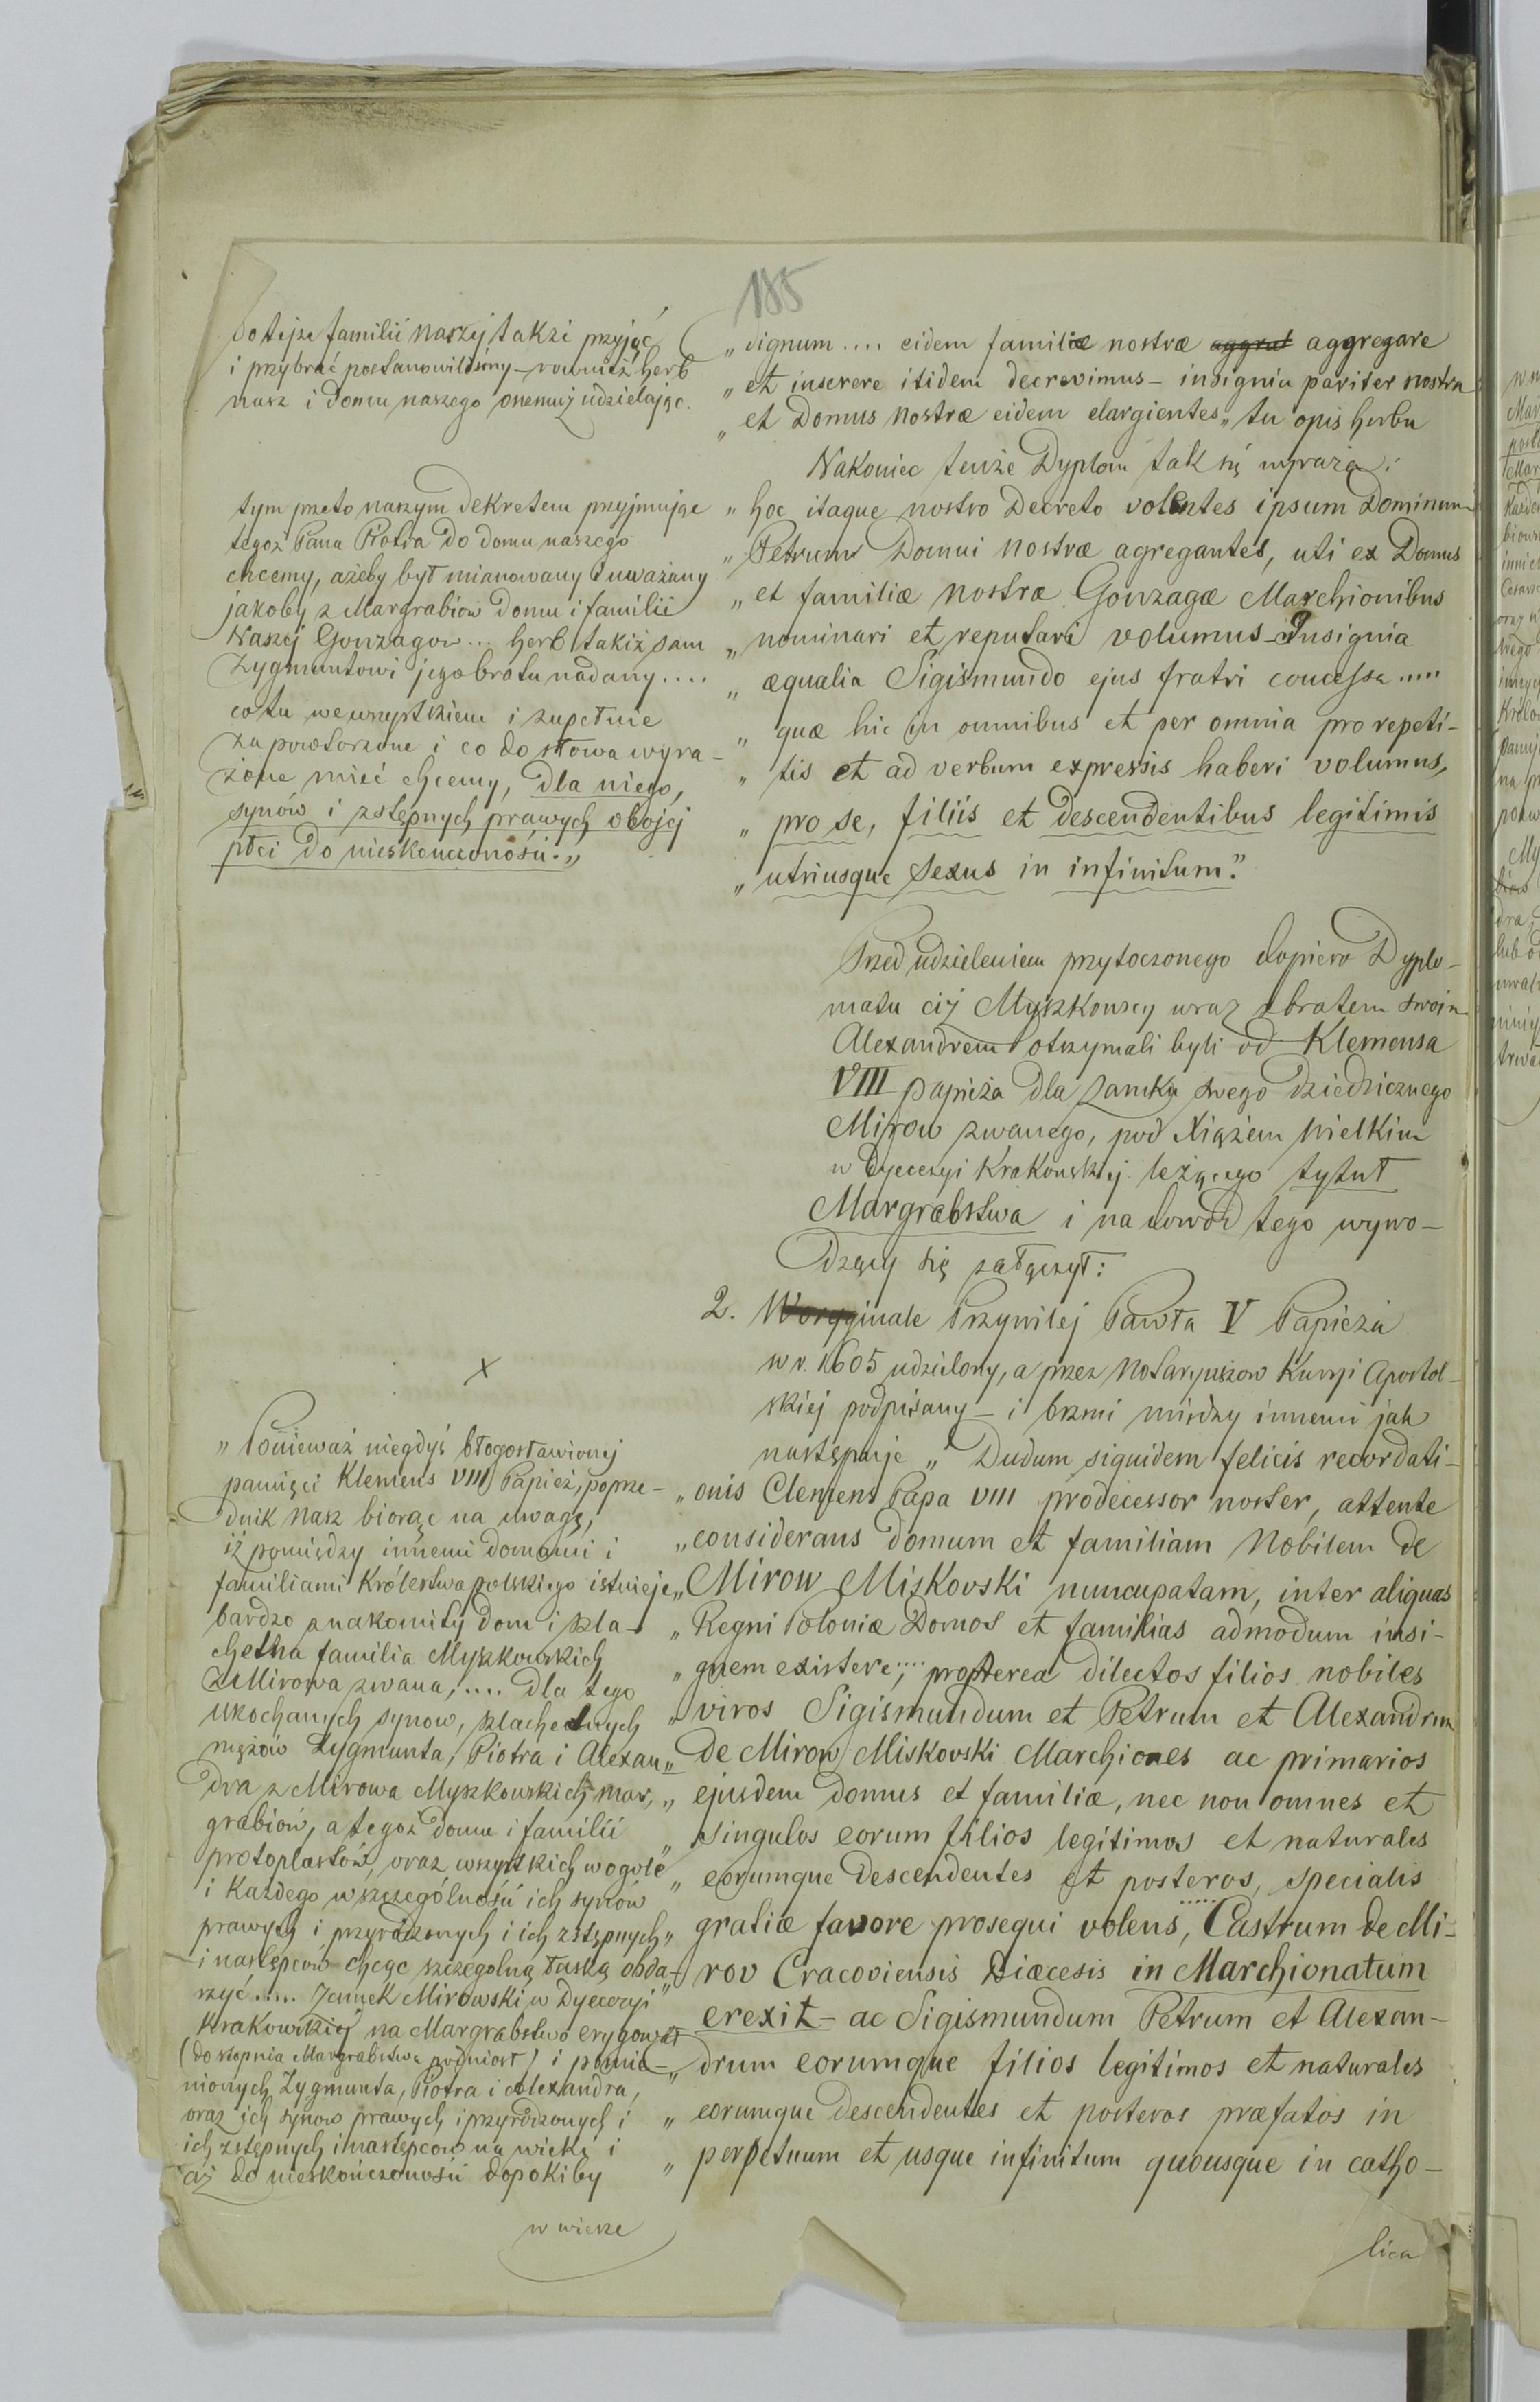 185
do tejże familii naszej także przyjąć
i przybrać postanowiliśmy – również herb
nasz i domu naszego onemuż udzielając.
tym przeto naszym dekretem przyjmując
tegoż Pana Piotra do domu naszego
chcemy, ażeby był mianowany i uważany
jakoby z Margrabiów domu i familii
Naszej Gonzagow... herb takiż sam
Zygmuntowi jego bratu nadany....
co tu we wszystkiem i zupełnie
za powtorzone i co do słowa wyra-
żone mieć chcemy, dla niego,
synów i zstępnych prawych obojej
płci do nieskonczoności."
"Ponieważ niegdyś błogosławionej
pamięci Klemens VIII Papież, poprze-
dnik nasz biorąc na uwagę,
iż pomiędzy innemi domami i
familiami Królestwa polskiego istnieje
bardzo znakomity dom i szla-
chetna familia Myszkowskich
z Mirowa zwana,.... dla tego
ukochanych synow, szlachetnych
mężów Zygmunta, Piotra i Alexan-
dra z Mirowa Myszkowskich mar-
grabiów, a tegoż domu i familii
protoplastów, oraz wszystkich wogole
i każdego w szczególności ich synów
prawych i przyrodzonych i ich zstępnych
i następców chcąc szczególną łaską obda-
rzyć..... Zamek Mirowski w Dyecezyi
Krakowskiej na Margrabstwo erygował
(do stopnia Margrabstwa podniosł) i pomie-
nionych Zygmunta, Piotra i Alexandra,
oraz ich synow prawych i przyrodzonych i
ich zstępnych i następcow na wieki i
aż do nieskończoności dopokiby
w wierze
„dignum.... eidem familiæ nostræ aggrat aggregare
„et inserere itidem decrevimus – insignia pariter nostra
„et Domus nostræ eidem elargientes„ tu opis herbu
Nakoniec tenże Dyplom tak się wyraża:
„hoc itaque nostro Decreto volentes ipsum Dominum
„Petrum Domui nostræ agregantes, uti ex Domus
„et familiæ nostræ Gonzagæ Marchionibus
„nominari et reputari volumus – Insignia
„æqualia Sigismundo ejus fratri concessa.....
„quæ hic in omnibus et per omnia pro repeti-
„tis et ad verbum expressis haberi volumus,
„pro se, filiis et descendentibus legitimis
„utriusque sexus in infinitum."
Przed udzieleniem przytoczonego dopiero Dyplo-
matu ciż Myszkowscy wraz z bratem swoim
Alexandrem otrzymali byli od Klemensa
VIII papieża dla zamku swego dziedzicznego
Mirow zwanego, pod Xiążem wielkim
w Dyecezyi Krakowskiej leżącego tytuł
Margrabstwa i na dowód tego wywo-
dzący się załączył:
2. W oryginale Przywilej Pawła V Papieża
w r. 1605 udzielony, a przez Notaryuszow Kuryi Apostol-
skiej podpisany – i brzmi między innemi jak
następuje „Dudum siquidem felicis recordati-
„onis Clemens Papa VIII prodecessor noster, attente
„considerans domum et familiam Nobilem de
„Mirow Miskovski nuncupatam, inter aliquas
„Regni Poloniæ Domos et familias admodum insi-
„gnem existere,.... propterea dilectos filios nobiles
„viros Sigismundum et Petrum et Alexandrum
„de Mirow Miskovski Marchiones ac primarios
„ejusdem domus et familiæ, nec non omnes et
„singulos eorum filios legitimos et naturales
„eorumque descendentes et posteros, specialis
„gratiæ favore prosequi volens,..... Castrum de Mi-
rov Cracoviensis Diæcesis in Marchionatum
„erexit – ac Sigismundum Petrum et Alexan-
„drum eorumque filios legitimos et naturales
„eorumque descendentes et posteros præfatos in
„perpetuum et usque infinitum quousque in catho-
lica